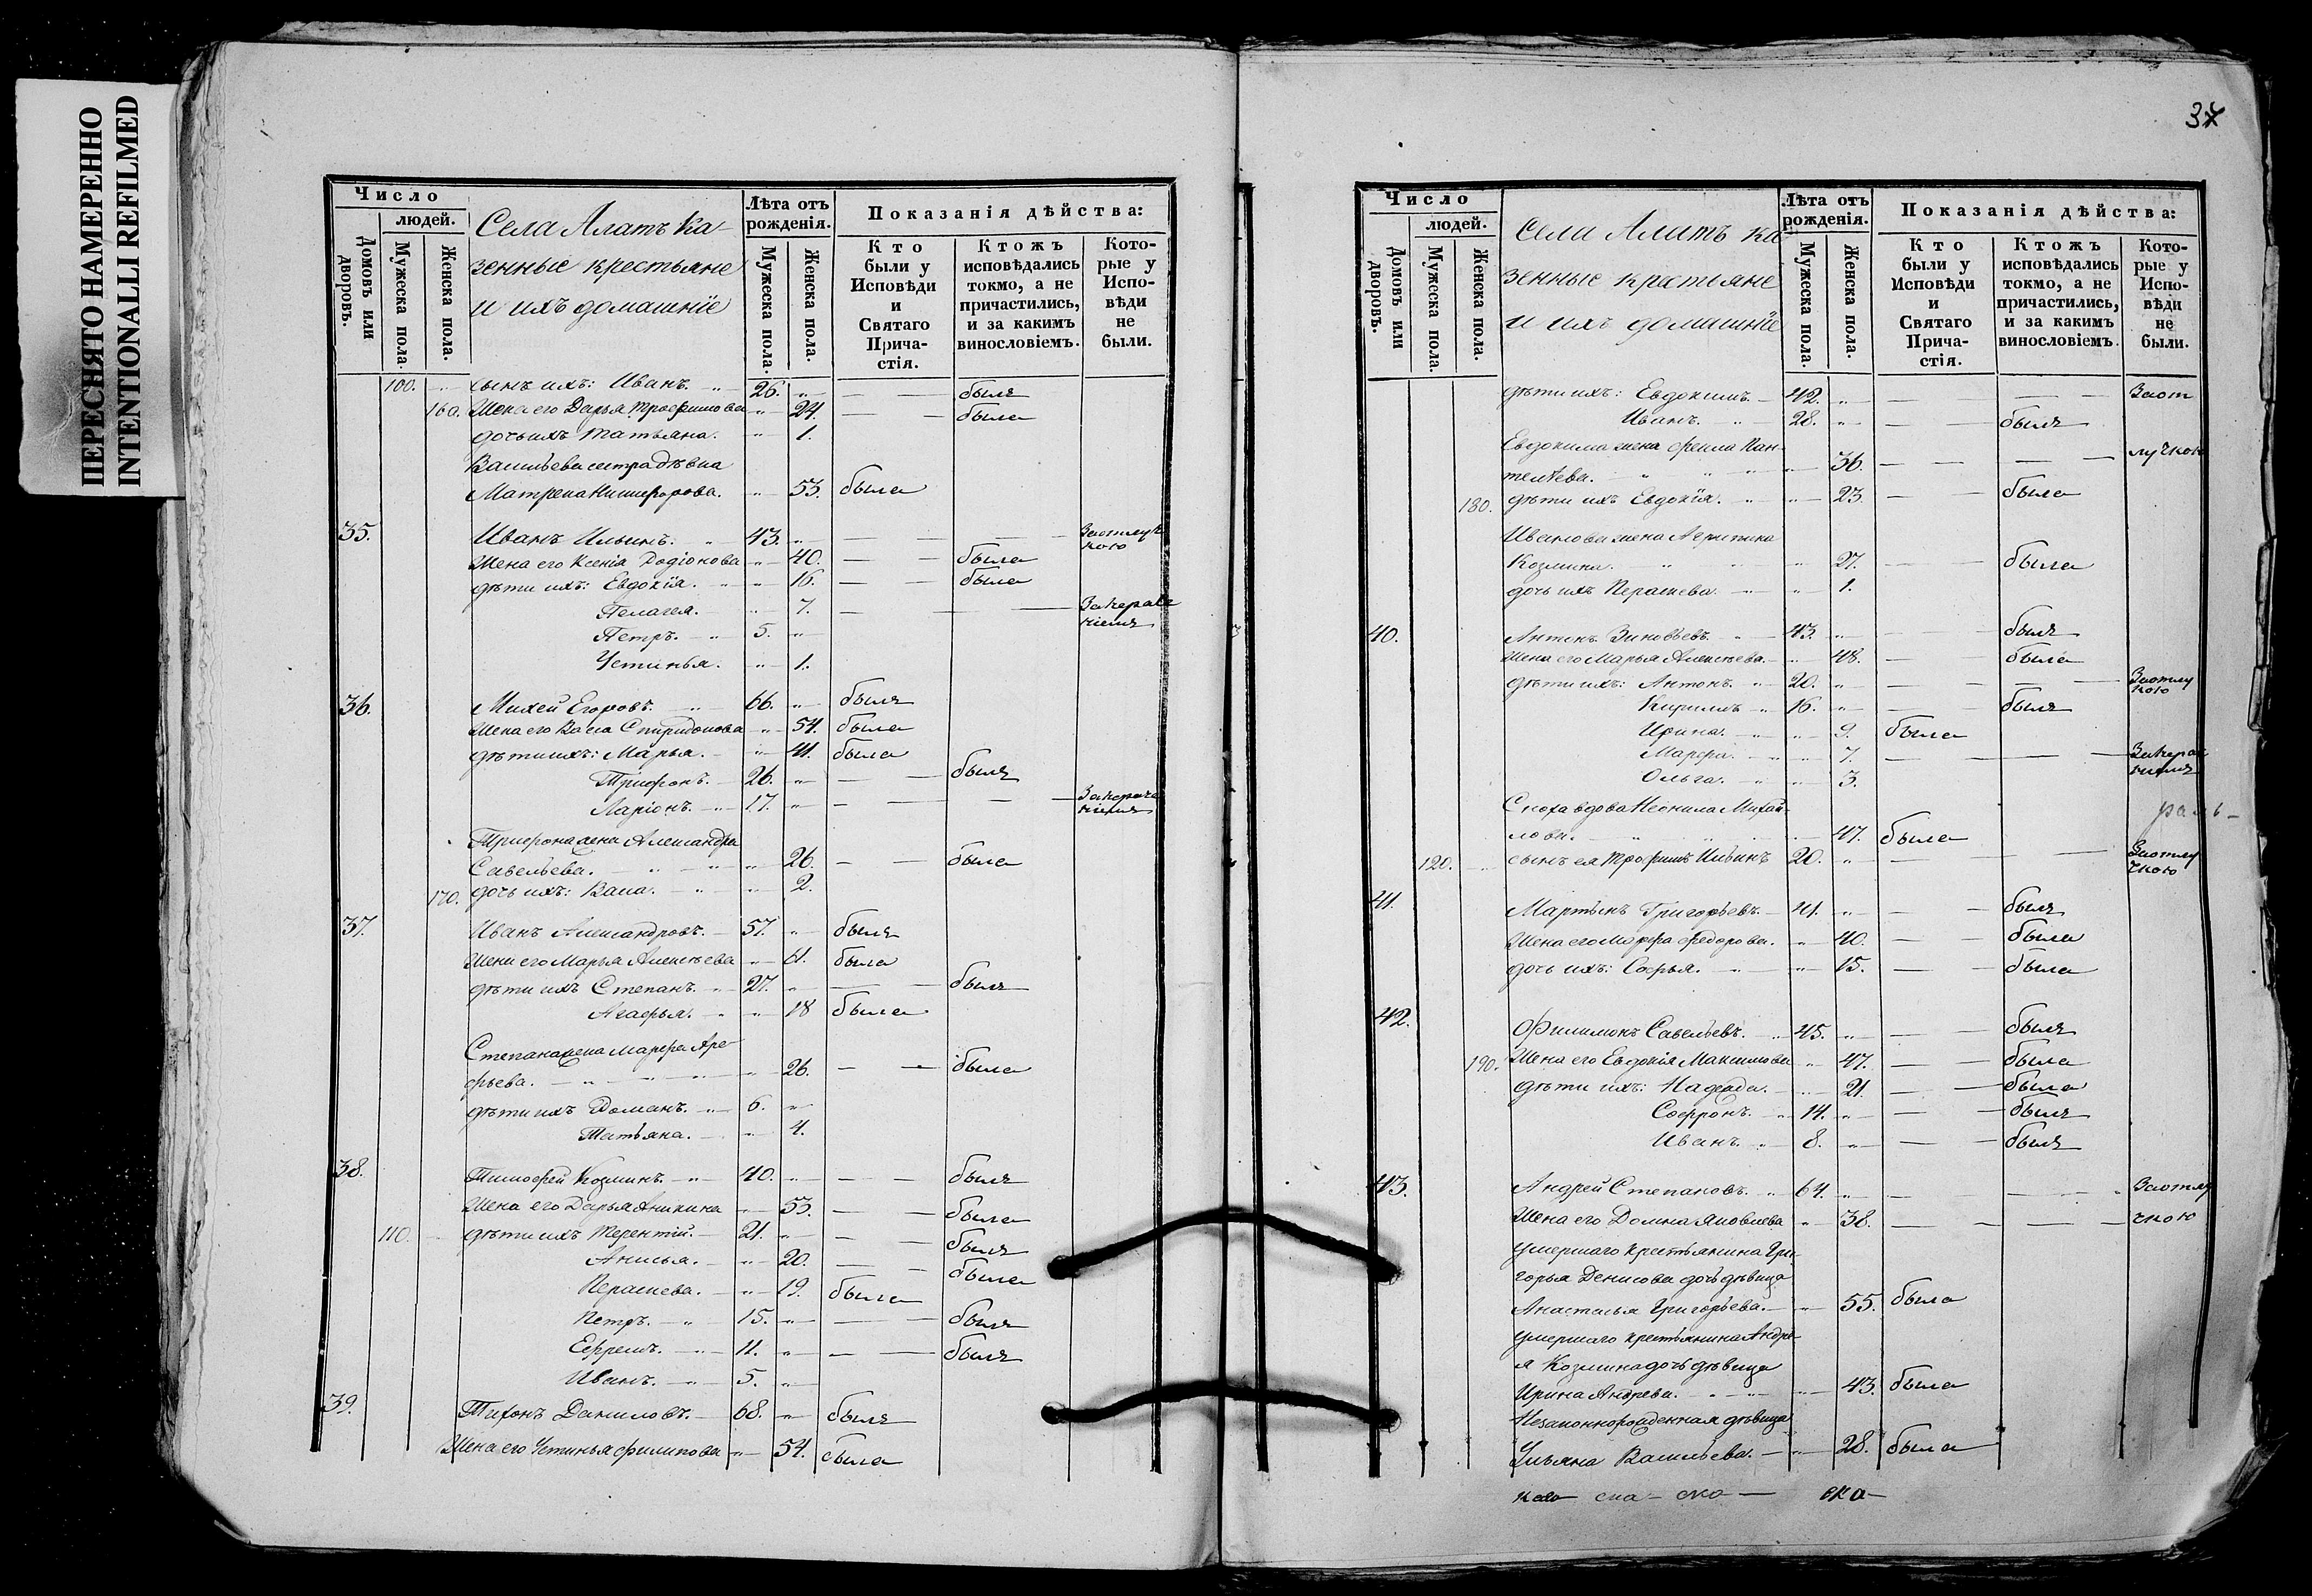 ПЕРЕСНЯТО НАМЕРЕННО
INTENTIONALLI REFILMED
Число
людей.
Домовъ или дворовъ.
Мужеска пола.
Женска пола.
Села Алатъ ка-
зенные крестьяне
и ихъ домашніе
Лѣта отъ рожденія.
Мужеска пола.
Женска пола.
Показанія дѣйства:
Кто были у Исповѣди и Святаго Прича-стія.
Ктожъ исповѣдались токмо, а не причастились, и за какимъ винословіемъ.
Кото-рые у Испо-вѣди не были.
100. сынъ ихъ: Иванъ. 26. — — былъ
160. Жена его Дарья Трофимова 24. — — была
дочь ихъ Татьяна. 1.
Васильева сестра дѣвка
Матрена Никифорова. 53. была
35. Иванъ Ильинъ. 43. — — — Заотлуч
кою
Жена его Ксенія Родіонова 40. — — была
дѣти ихъ: Евдокія. 16. — — была
Пелагея. 7. — — —
Петръ. 5.
Устинья. 1.
36. Михей Егоровъ. 66. былъ
Жена его Васса Спиридонова 54. была
дѣти ихъ: Марья. 41. была
Трифонъ. 26. — — былъ
Ларіонъ. 17. — — —
Трифона жена Александра
Савельева. 26. — — была
170. дочь ихъ: Васса. 2.
37. Иванъ Александровъ. 57. былъ
Жена его Марья Алексѣева 61. была
дѣти ихъ Степанъ. 27. — — былъ
Агафья. 18 была
Степана жена Марфа Аре-
фьева. 26. — — была
дѣти ихъ Романъ. 6.
Татьяна. 4.
38. Тимофей Козминъ. 40. — — былъ
Жена его Дарья Аникина 53. — — была
110. дѣти ихъ Терентій. 21. — — былъ
Анисья. 20. — — была
Парасковья. 19. была
Петръ. 15. — — былъ
Ефремъ. 11. — — былъ
Иванъ. 5.
39. Тихонъ Даниловъ. 68. былъ
Жена его Устинья Филипова 54. была
37
Число
людей.
Домовъ или дворовъ.
Мужеска пола.
Женска пола.
Села Алатъ ка
зенные крестьяне
и ихъ домашніе
Лѣта отъ рожденія.
Мужеска пола.
Женска пола.
Показанія дѣйства:
Кто были у Исповѣди и Святаго Прича-стія.
Ктожъ исповѣдались токмо, а не причастились, и за какимъ винословіемъ.
Кото-рые у Испо-вѣди не были.
дѣти ихъ: Евдокимъ. 42. — — — Заот
Иванъ. 28. — — былъ
Евдокима жена Фекла Пан-
телѣева. 36. — — — лучкою
180. дѣти ихъ Евдокія. 23. — была
Иванова жена Агрипина
Козмина. 27. — — была
дочь ихъ 1.
40. Антонъ Зиновьевъ. 43. — — былъ
Жена его Марья Алексѣева. 48. — была
дѣти ихъ: Антонъ. 20. — — — Заотлу
кою
Кирилъ 16. — — былъ
Ирина. 9. была
Марфа. 7. — — —
Ольга. 3.
Сноха вдова Неонила Михай-
лова. 47. была
120. сынъ ея Трофимъ Ильинъ 20. — — — Заотлу
чкою
41. Мартынъ Григорьевъ. 41. — — былъ
Жена его Марфа Федорова. 40. — — была
дочь ихъ: Софья. 15. — — была
42. Филимонъ Савельевъ. 45. — — былъ
190. Жена его Евдокія Максимова 47. — — была
дѣти ихъ: Надежда. 21. — — была
Софронъ. 14. — — былъ
Иванъ. 8. — — былъ
43. Андрей Степановъ. 64. — — — Заотлу
Жена его Домна Яковлева 38. — — — чкою
умершаго крестьянина Гри-
горья Денисова дочь дѣвица
Анастасья Григорьева. 55. была
умершаго крестьянина Андре-
я Козмина дочь дѣвица
Ирина Андрева. 43. была
Незаконнорожденная дѣвица
Ульяна Васильева. 28. была